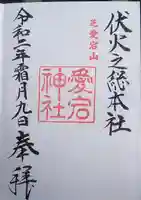 伏火之総本社
芝愛宕山
愛宕
神社
奉拝
令和二年霜月九日